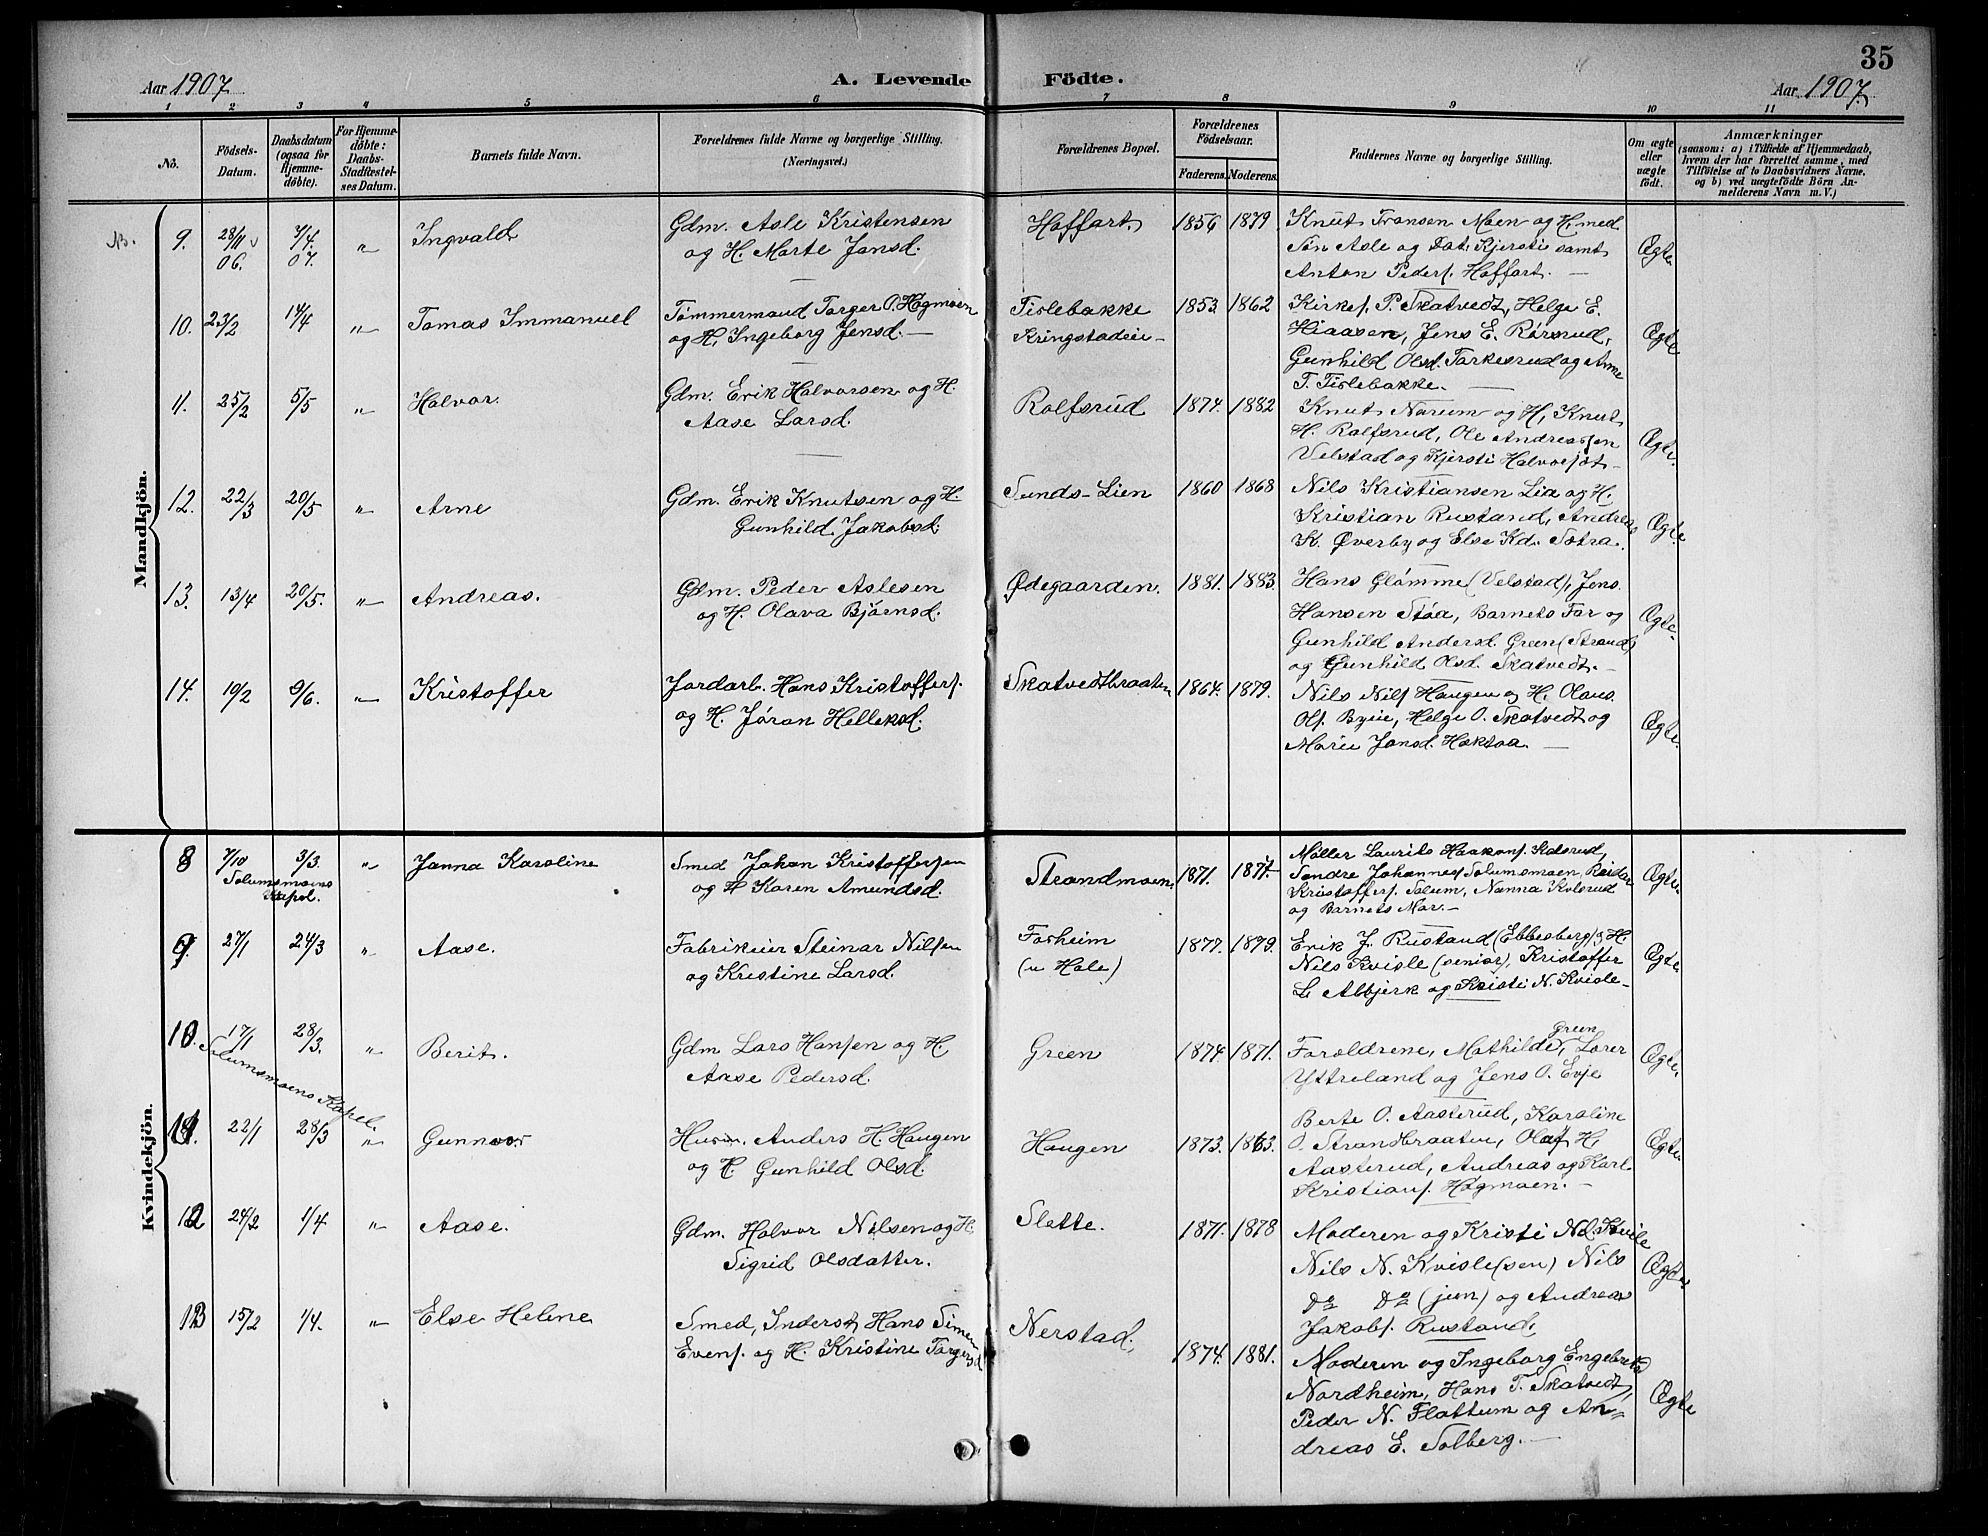 35
Aar 1907 A. Levende Födte. Aar 1907.
1 2 3 4 5 6 7 8 9 10 11
No. Födsels-Datum. Daabsdatum (ogsaa for Hjemmedöbte). For Hjemmedöbte: Daabs-Stadfæstelses Datum. Barnets fulde Navn. Forældrenes fulde Navne og borgerlige Stilling. (Næringsvei.) Forældrenes Bopæl. Forældrenes Födselsaar. Faderens. Moderens. Faddernes Navne og borgerlige Stilling. Om ægte eller uægte født. Anmærkninger (saasom: a) i Tilfælde af Hjemmedaab, hvem der har forrettet samme, med Tilføielse af to Daabsvidners Navne, og b) ved uægtefödte Börn Anmelderens Navn m. V.)
Mandkjön.
9. 28/11 06. 7/4 07. „ Ingvald Gdm. Asle Kristensen Haffart. 1856 1879. Knut Fransen Moen og H. med
og H. Marte Jansd. Søn Asle og Dat. Kjersti samt Ægte.
Anton Peders. Haffart. —
10. 23/2 14/4 „ Tomas Immanuel Tømmermand Torger O. Hagmoen Tislebakke 1853. 1862 Kirkes. P. Skatvedt, Helge E.
og H. Ingeborg Jensd. — Kringstadeie — Hiaasen, Jens E. Rørsrud, Ægte
Gunhild Olsd. Tarkesrud og Anne
T. Tislebakke. —
11. 25/2 5/5 „ Halvor. Gdm. Erik Halvorsen og H. Rolfsrud 1874. 1882 Knut Narum og H, Knut
Aase Larsd. H. Rolfsrud, Ole Andreassen Ægte.
Velstad og Kjersti
12. 22/3 20/5 „ Arne Gdm. Erik Knutsen og H. Sunds-Lien 1860 1868 Nils Kristiansen Lia og H.
Gunhild Jakobsd. Kristian Rustand, Andreas Ægte
K. Øverby og Else Kd. Søtra.
13. 13/4 20/5. „ Andreas. Gdm. Peder Aslesen Ødegaarden. 1881. 1883. Hans Glømme (Velstad), Jens
og H. Olava Bjørnsd. Hansen Støa, Barnets Far og Ægte.
Gunhild Andersd. Green (Strand)
og Gunhild Olsd. Skatvedt. —
14. 19/2 9/6. „ Kristoffer Jordarb. Hans Kristoffers. Skatvedtbraaten 1864. 1879. Nils Nils. Haugen og H. Olaus
og H. Jøran Helleksd. Ols. Byeie, Helge O. Skatvedt og Ægte.
Marie Jansd. —
Kvindekjön.
8 7/10 3/3. „ Janna Karoline Smed Johan Kristoffersen Strandmoen. 1871. 1871 Møller Laurits Haakons. Kolsrud,
Solumsmoens Kapel. og H Karen Amundsd. Søndre Johannes Solumsmoen, Reidar Ægte.
Kristoffers. Solum, Nanna Kolsrud
og Barnets Mor. —
9. 27/1 24/3 „ Aase. Fabrikeier Steinar Nilsen Forheim 1877. 1879. Erik J. Rustand (Ebbesberg) og H.
og Kristine Larsd. (u Hole) Nils Kvisle (senior), Kristoffer Ægte.
L. Albjerk og Kristi N. Kvisle —
10. 17/1 28/3. „ Berit. Gdm Lars Hansen og H. Green 1874 1871. Forældrene, Mathilde Green, Lorer
Solumsmoens Kapel. Aase Pedersd. Yttreland og Jens O. Evje Ægte.
11. 22/1 28/3 „ Gunnvor Husm. Anders H. Haugen Haugen 1873. 1863. Berte O. Aasterud, Karoline
og H. Gunhild Olsd. O. Strandbraaten, Olaf H. Ægte
Aasterud, Andreas og Karl
Kristians. Hagmoen. —
12 24/2 1/4 „ Aase. Gdm. Halvor Nilsen og H. Slette. 1871. 1878 Moderen og Kristi Nd. Kvisle
Sigrid Olsdatter. Nils N. Kvisle (sen) Nils Ægte
Do Do (jun) og Andreas
Jakobs. Rustand.
13 15/2 1/4. „ Else Helene Smed, Inderst Hans Simen Nerstad. 1874. 1881. Moderen og Ingeborg Engebrets
Evens. og H. Kristine Torgersd. Nordheim, Hans T. Skatvedt, Ægte
Peder N. Flattum og An-
dreas E. Solberg. —